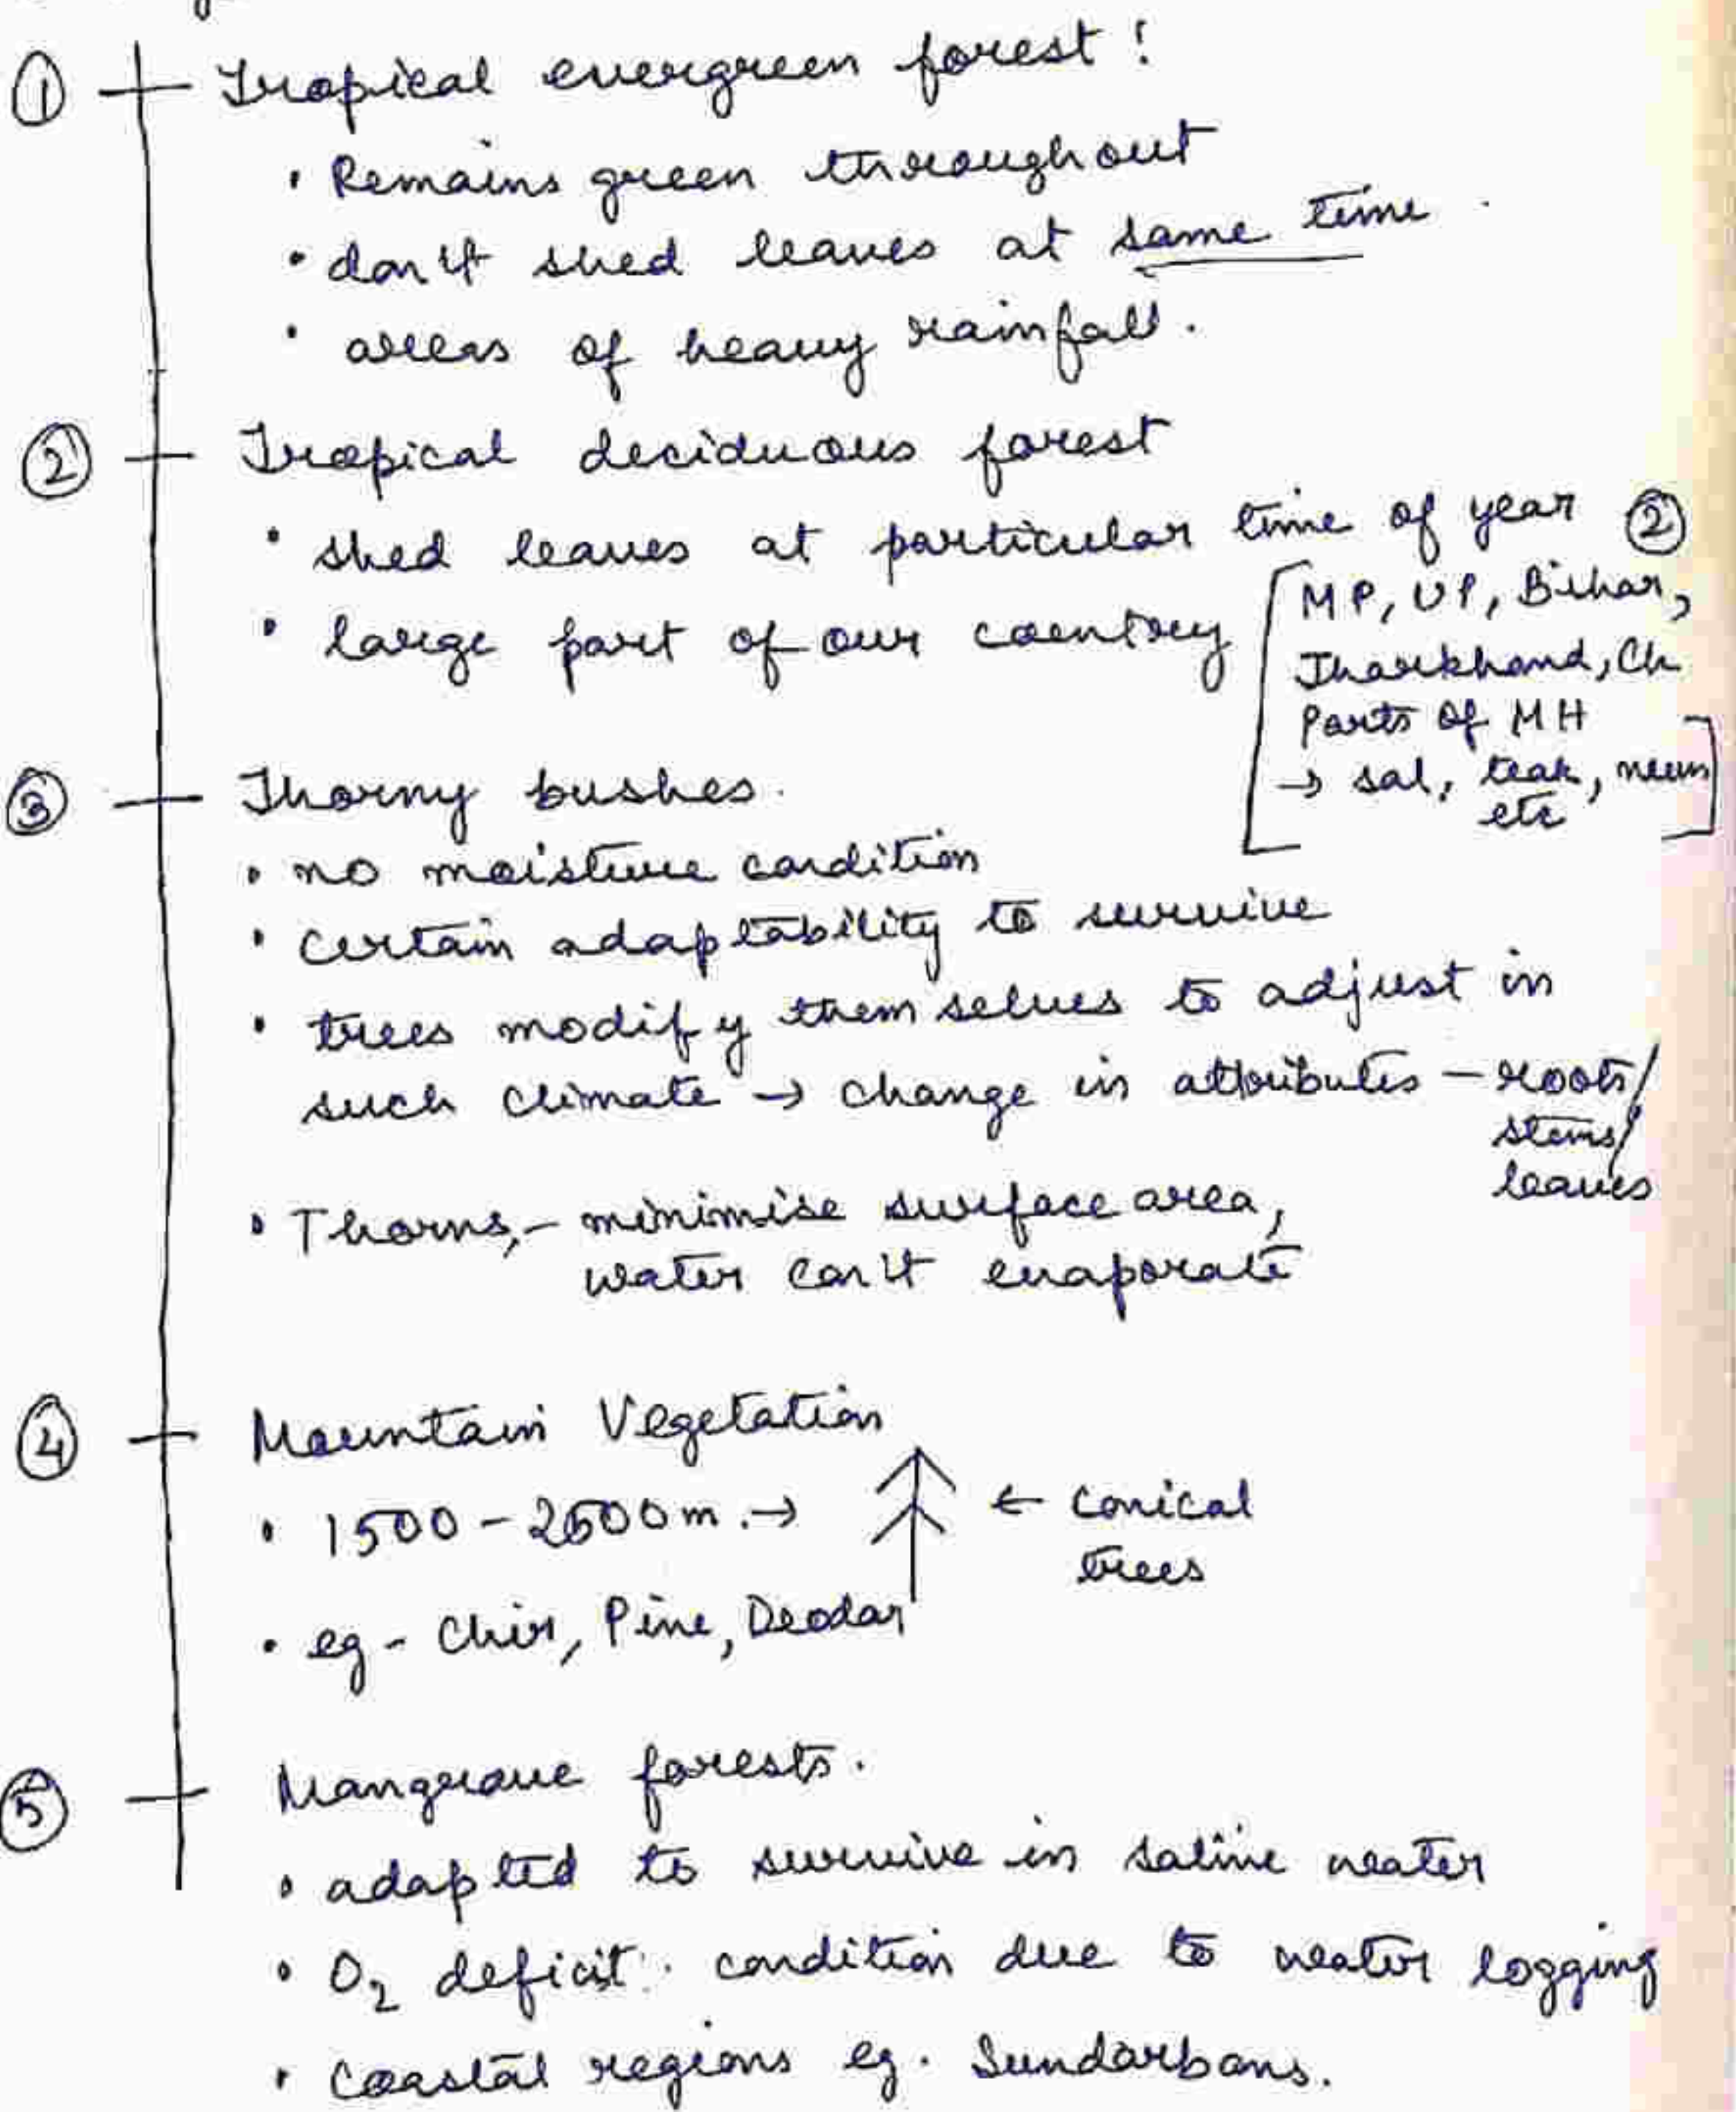 ① Tropical evergreen forest :
• Remains green throughout
• don't shed leaves at same time.
• areas of heavy rainfall.
② Tropical deciduous forest
• shed leaves at particular time of year
• large part of our country
②
MP, UP, Bihar,
Jharkhand, Ch
Parts of MH
→ sal, teak, neem
etc
③ Thorny bushes.
• no moisture condition
• certain adaptability to survive
• trees modify themselves to adjust in
such climate → change in attributes – roots/
stems/
leaves
• Thorns, – minimise surface area,
water can't evaporate
④ Mountain Vegetation
• 1500 – 2500 m. → ← conical
trees
• eg - Chir, Pine, Deodar
⑤ Mangrove forests.
• adapted to survive in saline water
• O₂ deficit condition due to water logging
• coastal regions eg. Sundarbans.